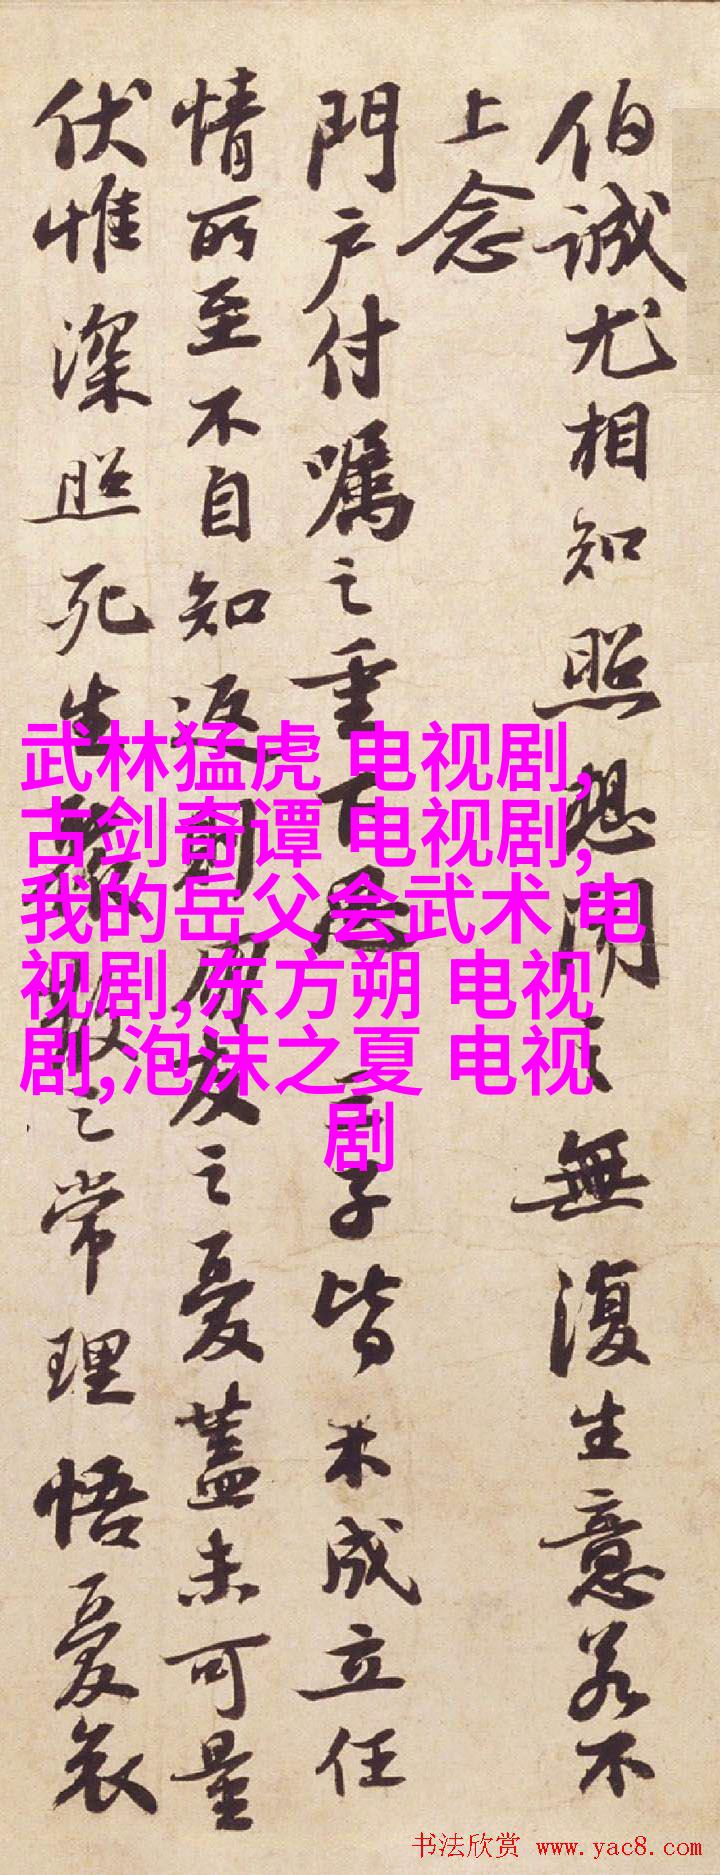 伯誠尤相知照想聞之無復生意若不
上念
門户付囑之重下思三子皆未成立任
情所至不自知返則朋友之憂蓋未可量
伏惟深照死生聚散之常理悟憂哀
武林猛虎 电视剧,
古剑奇谭 电视剧,
我的岳父会武术 电
视剧,东方朔 电视
剧,泡沫之夏 电视
剧
书法欣赏 www.yac8.com